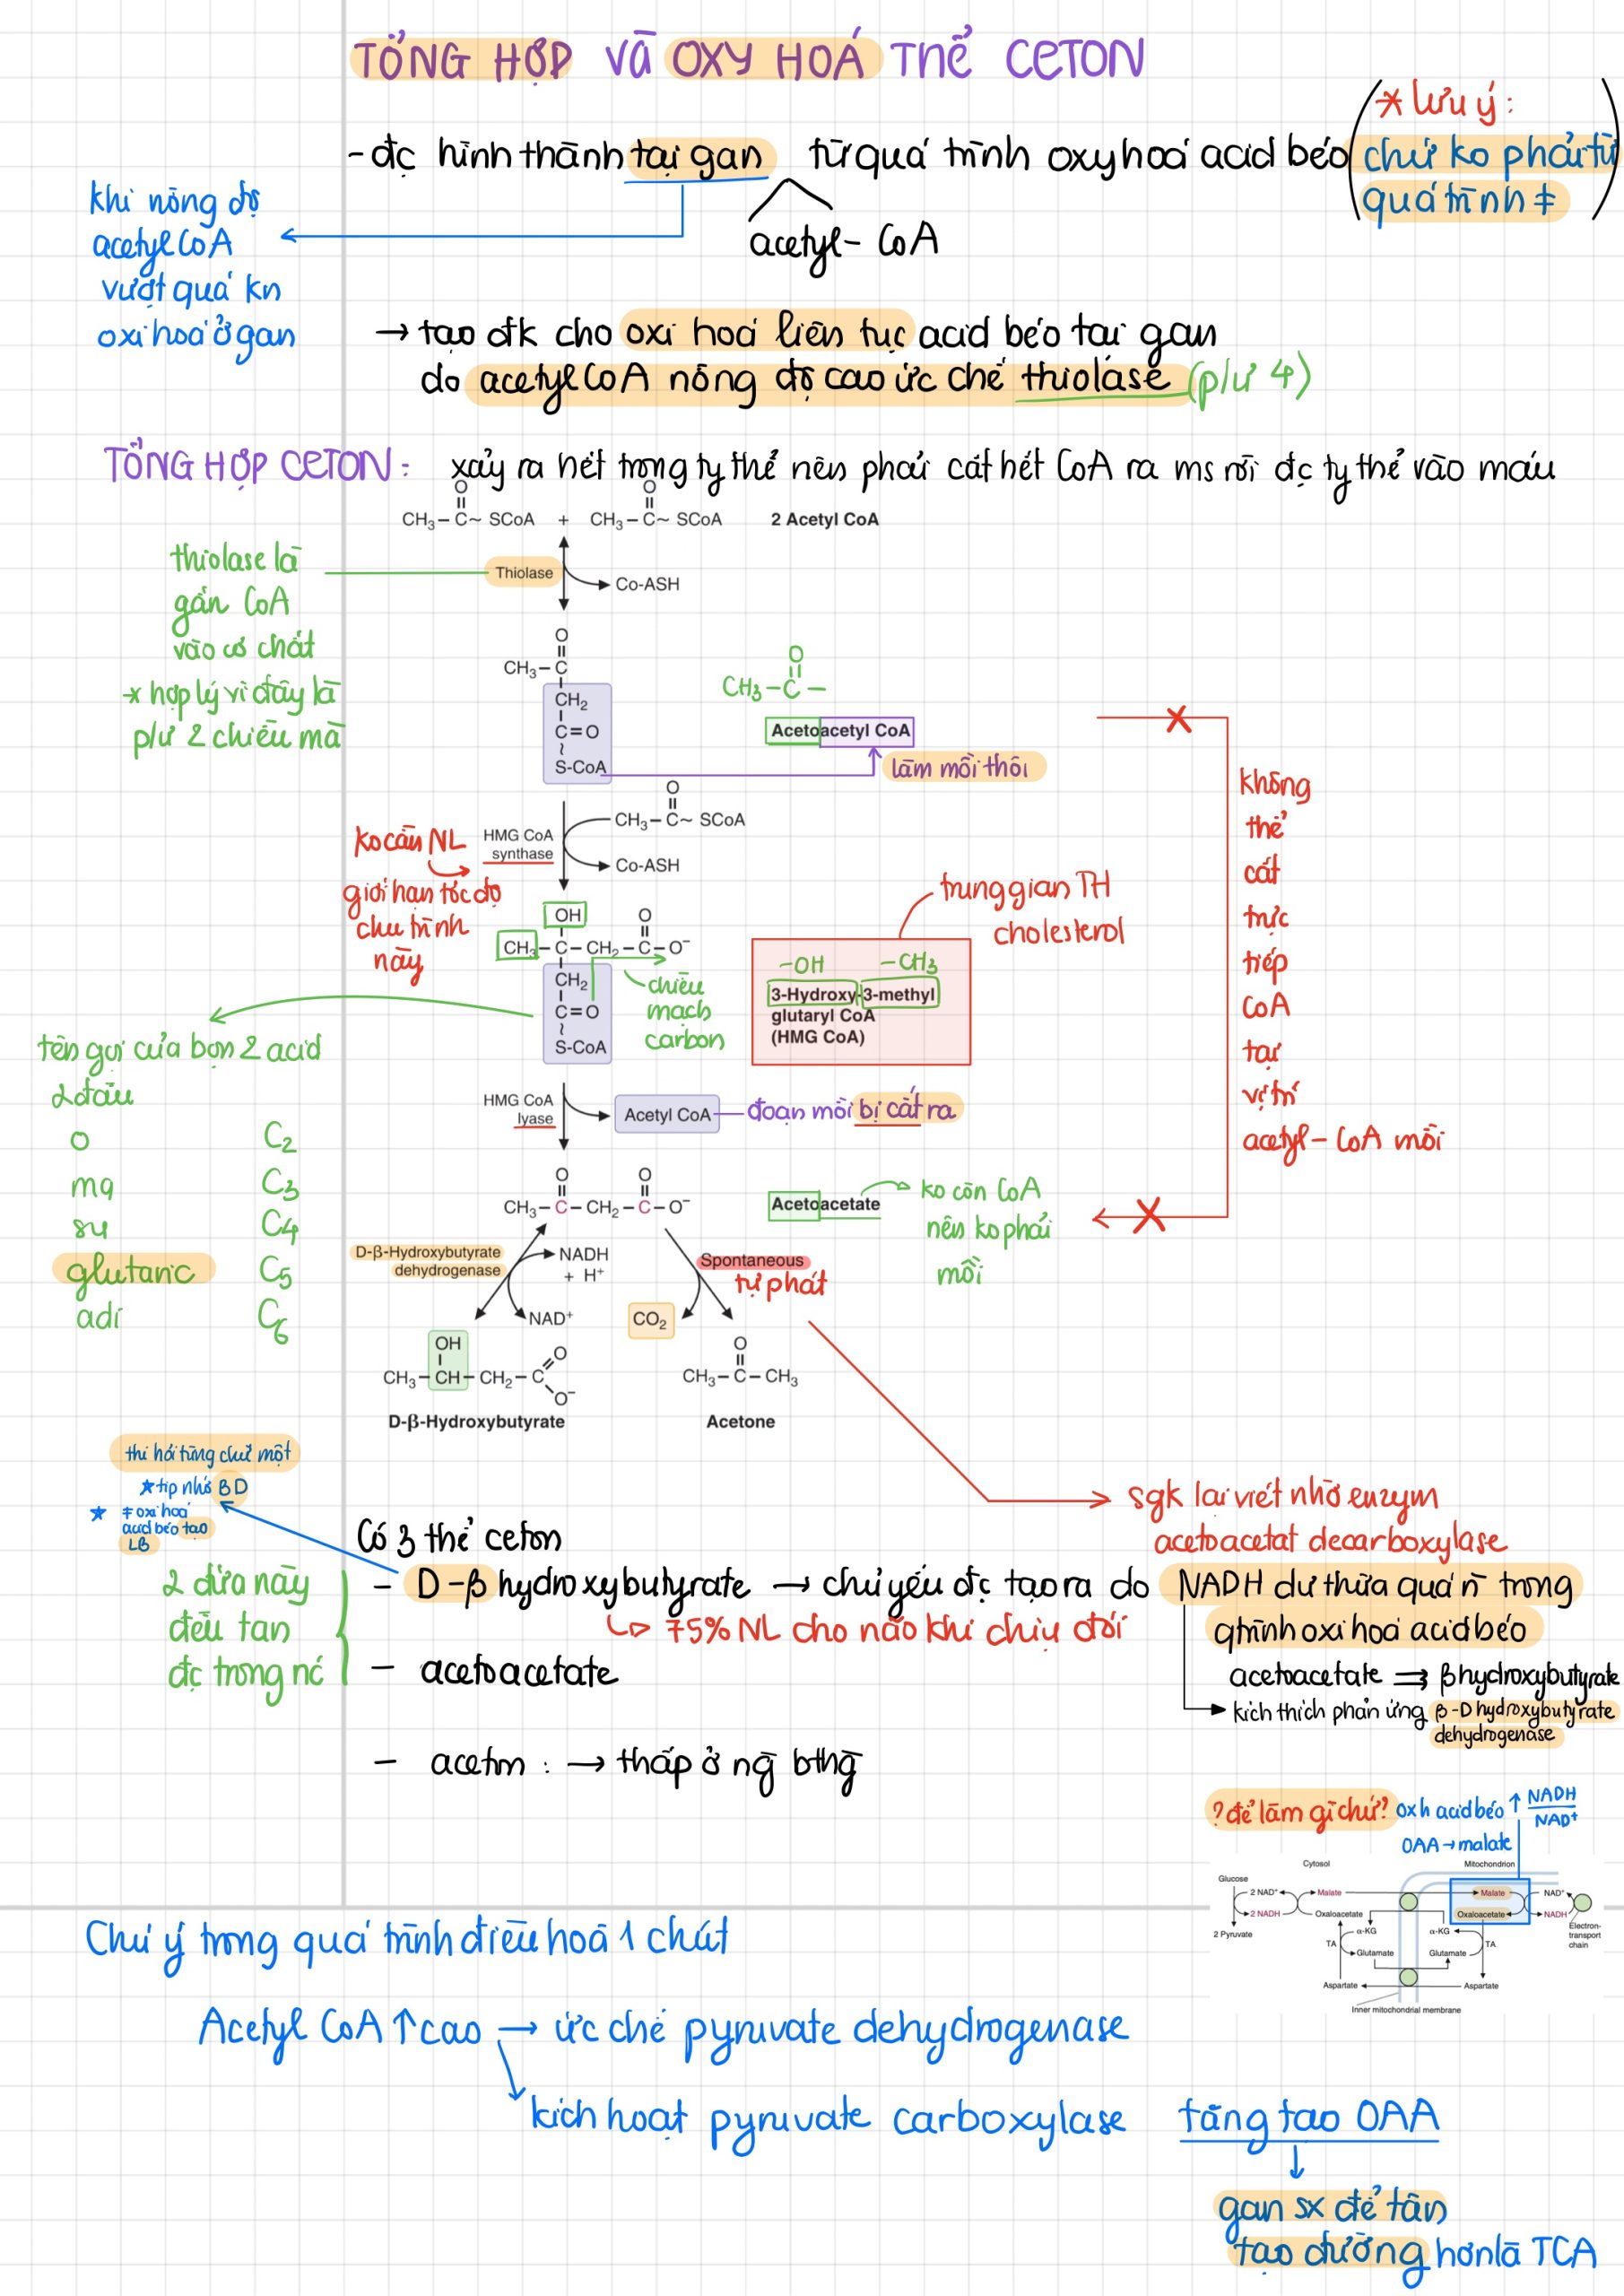 TỔNG HỢP và OXY HOÁ THỂ CETON
* lưu ý:
- đc hình thành tại gan từ quá trình oxy hoá acid béo (chứ ko phải từ
quá trình ≠)
khi nồng độ
acetyl CoA
vượt quá kn
oxi hoá ở gan
acetyl - CoA
→ tạo đk cho oxi hoá liên tục acid béo tại gan
do acetyl CoA nồng độ cao ức chế thiolase (p/ư 4)
TỔNG HỢP CETON: xảy ra hết trong ty thể nên phải cắt hết CoA ra ms rời đc ty thể vào máu
O O
CH₃–C~ SCoA + CH₃–C~ SCoA 2 Acetyl CoA
thiolase là
gắn CoA
vào cơ chất
→ hợp lý vì đây là
p/ư 2 chiều mà
Thiolase
Co-ASH
O
CH₃–C
CH₂
C=O
S-CoA
O
CH₃–C–
Acetoacetyl CoA
làm mồi thôi
không
thể
cắt
trực
tiếp
CoA
tại
vị trí
acetyl - CoA mồi
O
CH₃–C~ SCoA
HMG CoA
synthase
Co-ASH
ko cần NL
giới hạn tốc độ
chu trình
này
OH O
CH₃–C–CH₂–C–O⁻
CH₂
C=O
S-CoA
chiều
mạch
carbon
trung gian TH
cholesterol
-OH -CH₃
3-Hydroxy-3-methyl
glutaryl CoA
(HMG CoA)
tên gọi của bọn 2 acid
2 đầu
o C₂
ma C₃
su C₄
glutaric C₅
adi C₆
HMG CoA
lyase
Acetyl CoA
đoạn mồi bị cắt ra
O O
CH₃–C–CH₂–C–O⁻
Acetoacetate
ko còn CoA
nên ko phải
mồi
D-β-Hydroxybutyrate
dehydrogenase
NADH
+ H⁺
NAD⁺
Spontaneous
tự phát
CO₂
OH O
CH₃–CH–CH₂–C
O⁻
D-β-Hydroxybutyrate
O
CH₃–C–CH₃
Acetone
sgk lại viết nhờ enzym
acetoacetat decarboxylase
thi hỏi từng chữ một
★ tip nhớ BD
★ ≠ oxi hoá
acid béo tạo
LB
Có 3 thể ceton
2 đứa này
đều tan
đc trong nc
- D-β hydroxybutyrate → chủ yếu đc tạo ra do NADH dư thừa quá n` trong
qtrình oxi hoá acid béo
↳ 75% NL cho não khi chịu đói
- acetoacetate
acetoacetate ⇒ β hydroxybutyrate
kích thích phản ứng β-D hydroxybutyrate
dehydrogenase
- aceton : → thấp ở ng bthg
? để làm gì chứ?
oxh acid béo ↑ NADH
NAD⁺
OAA → malate
Cytosol Mitochondrion
Glucose
2 NAD⁺ Malate Malate NAD⁺
2 NADH Oxaloacetate Oxaloacetate NADH
2 Pyruvate
α-KG α-KG
Electron-
transport
chain
TA TA
Glutamate Glutamate
Aspartate Aspartate
Inner mitochondrial membrane
Chú ý trong quá trình điều hoà 1 chất
Acetyl CoA ↑ cao → ức chế pyruvate dehydrogenase
kích hoạt pyruvate carboxylase tăng tạo OAA
gan sx để tân
tạo đường hơn là TCA